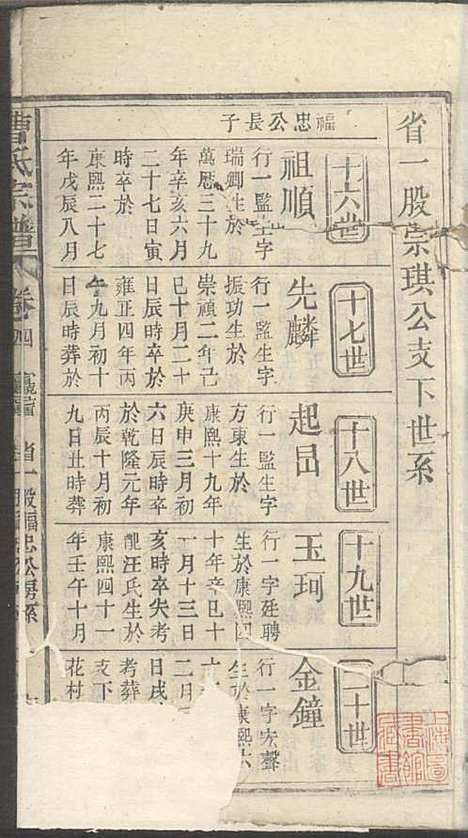 省一股崇琪公支下世系
十六世
福忠公長子
祖順
行一監生字
瑞卿生於
萬厯三十九
年辛亥六月
二十七日寅
時卒於
康熙二十七
年戊辰八月
十七世
先麟
行一監生字
振功生於
崇禎二年己
巳十月二十
日辰時卒於
雍正四年丙
午九月初十
日辰時葬於
十八世
起邑
行一監生字
方東生於
康熙十九年
庚申三月初
六日辰時卒
於乾隆元年
丙辰十月初
九日丑時葬
十九世
玉珂
行一字廷聘
生於康熙四
十年辛巳十
一月十三日
亥時卒失考
配汪氏生於
康熙四十一
年壬午十月
二十世
金鐘
行一字宏聲
生於康熙六
十
二月二
日戌
考葬
支下
花村
曹氏宗譜
卷四
省一股福忠公房系
上海圖書館藏書